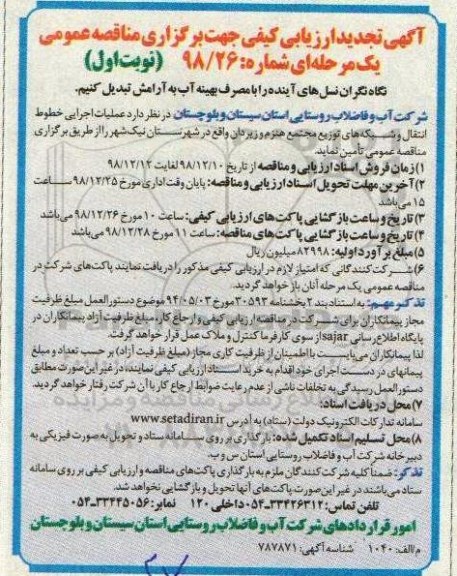 آگهی تجدید ارزیابی کیفی جهت برگزاری مناقصه عمومی
یک مرحله‌ای شماره: ۹۸/۲۶ (نوبت اول)
نگاه نگران نسل‌های آینده را با مصرف بهینه آب به آرامش تبدیل کنیم.
شرکت آب و فاضلاب روستایی استان سیستان و بلوچستان در نظر دارد عملیات اجرایی خطوط
انتقال و شبکه‌های توزیع مجتمع هنزم و زیردان واقع در شهرستان نیک‌شهر را از طریق برگزاری
مناقصه عمومی تأمین نماید.
۱) زمان فروش اسناد ارزیابی و مناقصه از تاریخ ۹۸/۱۲/۱۰ لغایت ۹۸/۱۲/۱۲
۲) آخرین مهلت تحویل اسناد ارزیابی و مناقصه: پایان وقت اداری مورخ ۹۸/۱۲/۲۵ ساعت
۱۵ می‌باشد
۳) تاریخ و ساعت بازگشایی پاکت‌های ارزیابی کیفی: ساعت ۱۰ مورخ ۹۸/۱۲/۲۶ می‌باشد
۴) تاریخ و ساعت بازگشایی پاکت‌های مناقصه: ساعت ۱۱ مورخ ۹۸/۱۲/۲۸ می‌باشد
۵) مبلغ برآورد اولیه: ۸۲۹۹۸ میلیون ریال
۶) شرکت‌کنندگانی که امتیاز لازم در ارزیابی کیفی مذکور را دریافت نمایند پاکت‌های شرکت در
مناقصه عمومی یک مرحله آنان باز خواهد گردید.
تذکر مهم: به استناد بند ۲ بخشنامه ۳۰۵۹۳ مورخ ۹۴/۰۵/۰۳ موضوع دستورالعمل مبلغ ظرفیت
مجاز پیمانکاران برای شرکت در مناقصه ارزیابی کیفی و ارجاع کار، مبلغ ظرفیت آزاد پیمانکاران در
پایگاه اطلاع‌رسانی sajar از سوی کارفرما کنترل و ملاک عمل قرار خواهد گرفت.
لذا پیمانکاران می‌بایست با اطمینان از ظرفیت کاری مجاز (مبلغ ظرفیت آزاد) بر حسب تعداد و مبلغ
پیمانهای در دست اجرای خود اقدام به خرید اسناد ارزیابی کیفی نمایند، در غیر این‌صورت مطابق
دستورالعمل رسیدگی به تخلفات ناشی از عدم رعایت ضوابط ارجاع کار با آن شرکت رفتار خواهد گردید.
۷) محل دریافت اسناد:
سامانه تدارکات الکترونیک دولت (ستاد) به آدرس www.setadiran.ir
۸) محل تسلیم اسناد تکمیل شده: بارگذاری بر روی سامانه ستاد و تحویل به صورت فیزیکی به
دبیرخانه شرکت آب و فاضلاب روستایی استان س و ب.
تذکر: ضمناً کلیه شرکت کنندگان ملزم به بارگذاری پاکت‌های مناقصه و ارزیابی کیفی بر روی سامانه
ستاد می‌باشند در غیر این صورت پاکت‌های آنها تحویل و بازگشایی نخواهد شد.
تلفن تماس: ۳۳۴۲۶۳۱۲-۰۵۴ داخلی ۱۲۰ نمابر: ۳۳۴۴۵۰۵۶-۰۵۴
امور قراردادهای شرکت آب و فاضلاب روستایی استان سیستان و بلوچستان
م الف: ۱۰۴۰ شناسه آگهی: ۷۸۷۸۷۱